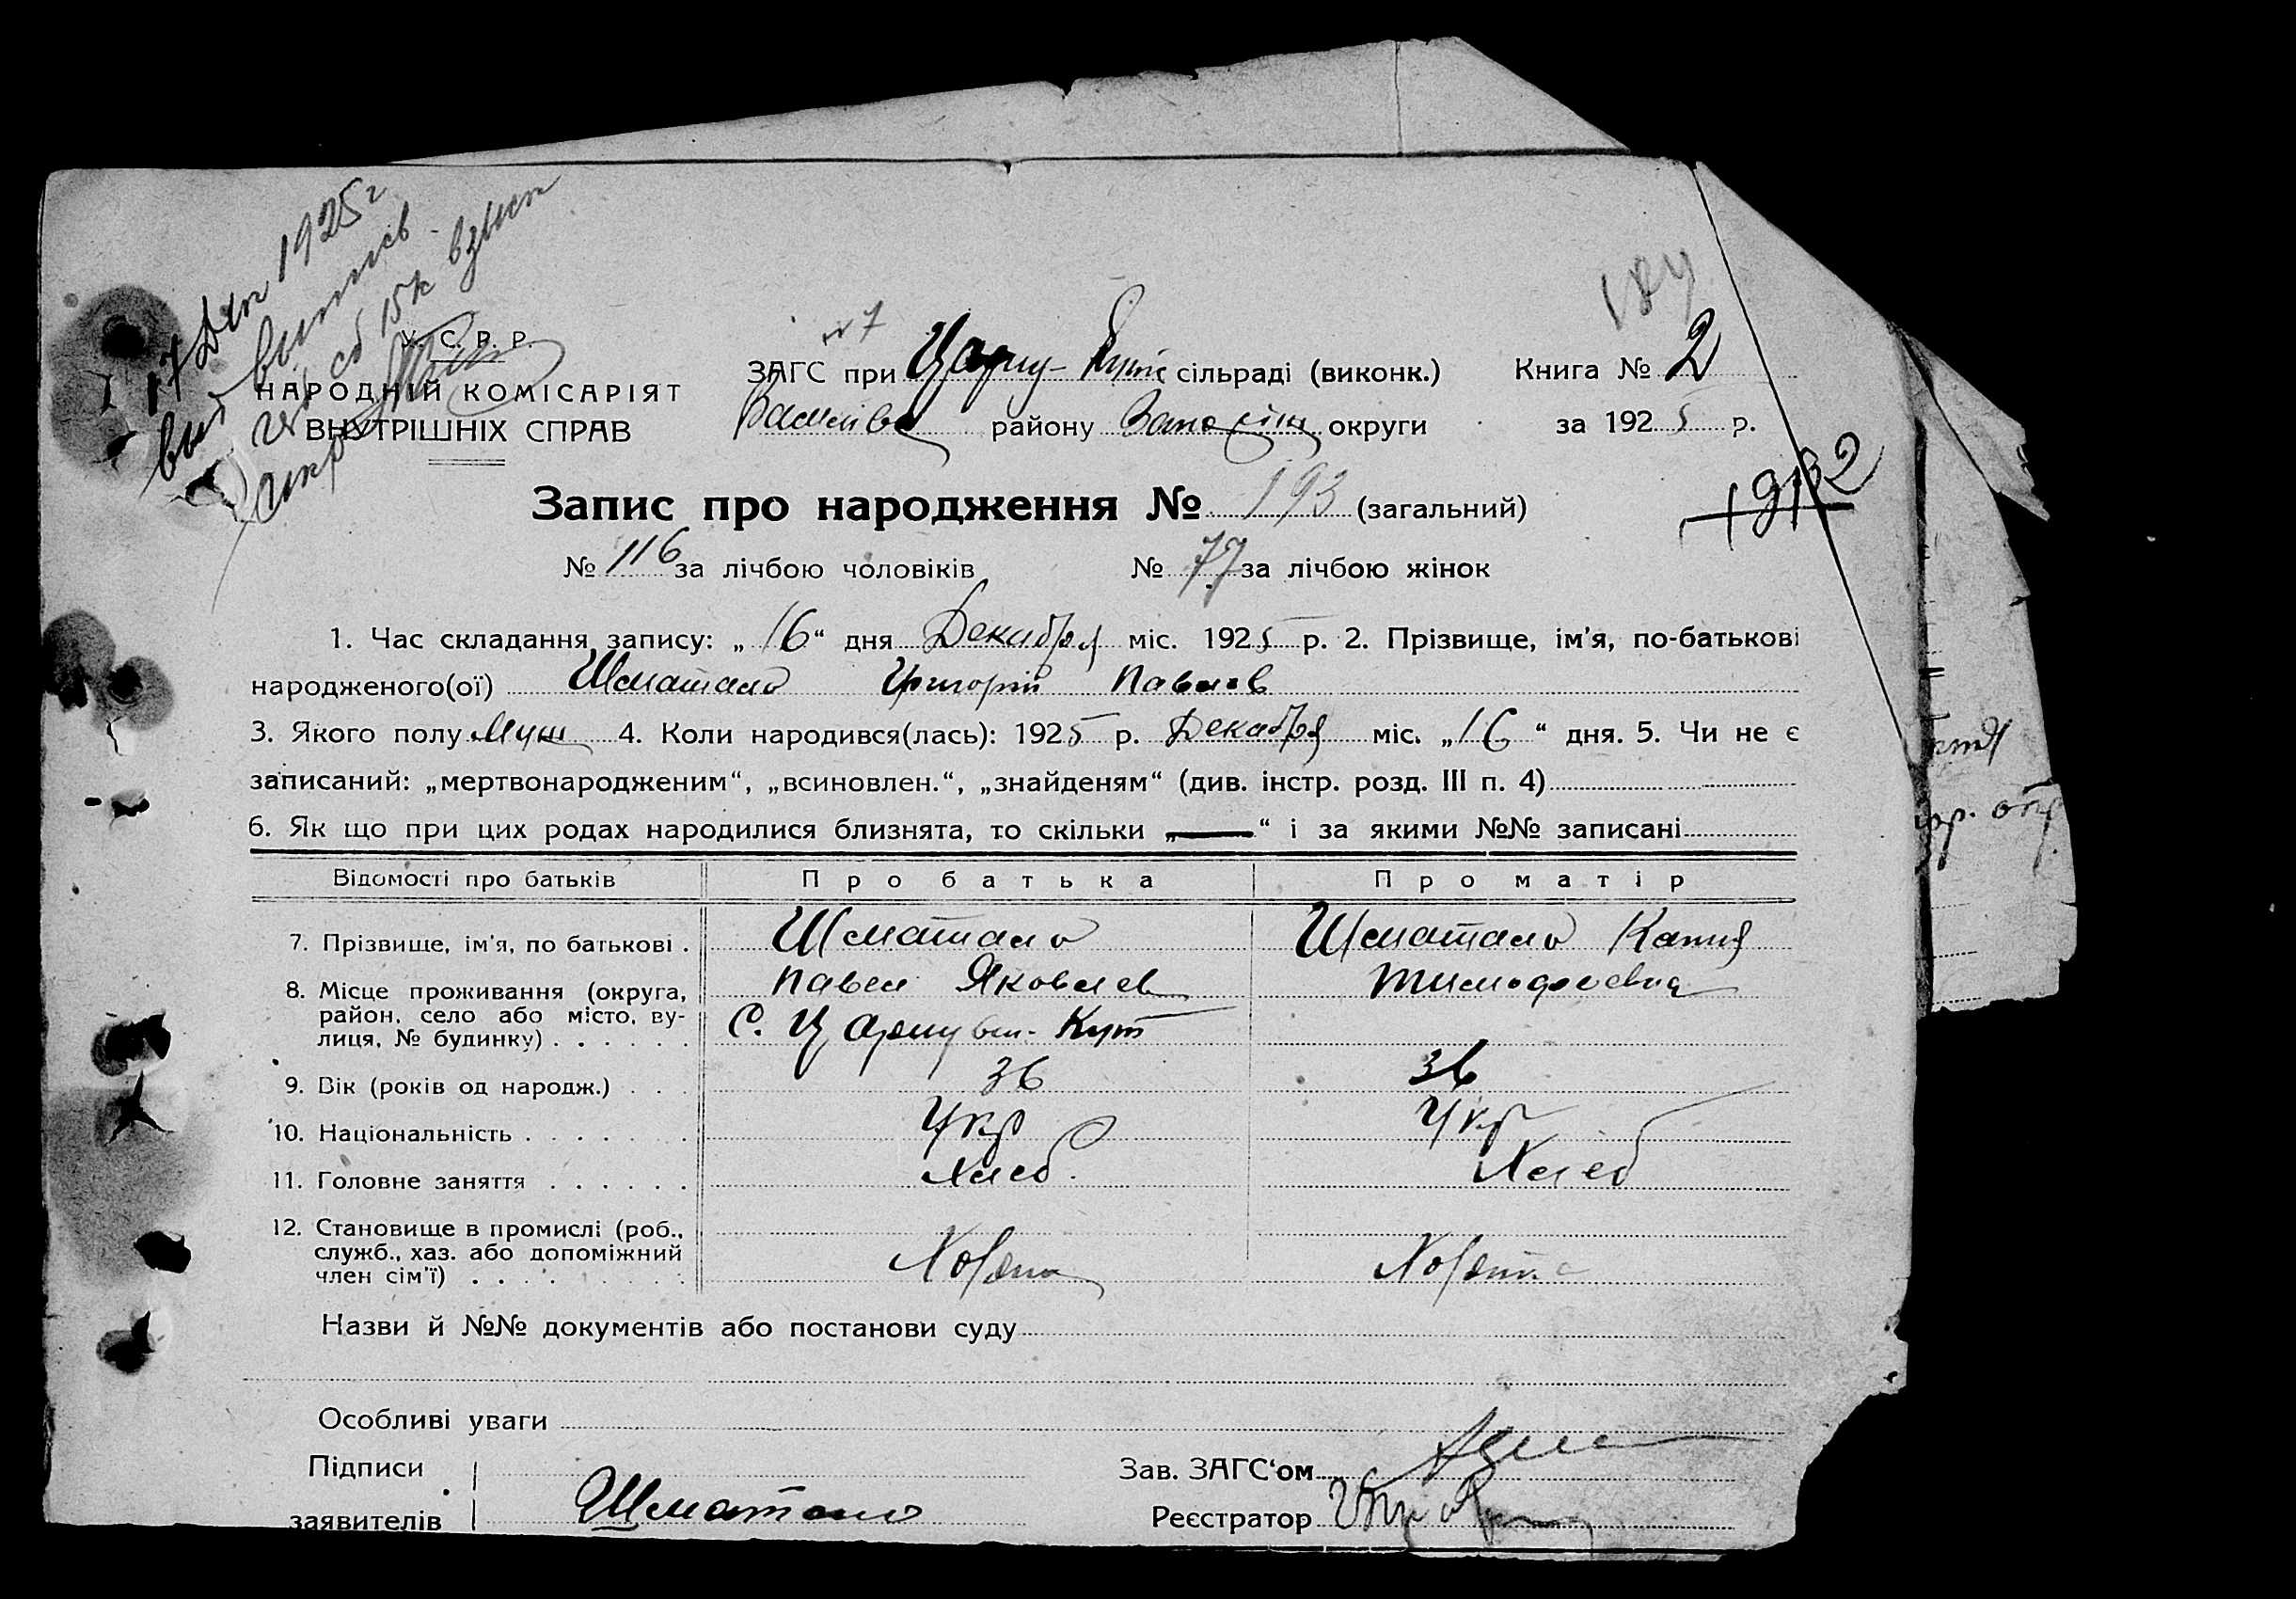 17 Дек 1925 г
выпись
15 к взыск
184
У. С. Р. Р.
НАРОДНІЙ КОМІСАРІЯТ
ВНУТРІШНІХ СПРАВ
№ 7
ЗАГС при Царицу-Куті сільраді (виконк.)
Василівс району округи
Книга № 2
за 1925 р.
Запис про народження № 193 (загальний)
№ 116 за лічбою чоловіків № 77 за лічбою жінок
1. Час складання запису: „16“ дня Декабря міс. 1925 р. 2. Прізвище, ім'я, по-батькові
народженого(ої) Шматало Григорій Павлов
3. Якого полу Муж 4. Коли народився(лась): 1925 р. Декабря міс. „16“ дня. 5. Чи не є
записаний: „мертвонародженим“, „всиновлен.“, „знайденям“ (див. інстр. розд. III п. 4)
6. Як що при цих родах народилися близнята, то скільки „—“ і за якими №№ записані
Відомості про батьків Про батька Про матір
7. Прізвище, ім'я, по батькові . Шматало Шматало
8. Місце проживання (округа, Павел Яковлев Тимофеевна
район, село або місто, ву-
лиця, № будинку) . . . . . . С. Кут
9. Вік (років од народж.) . . . 36 36
10. Національність . . . . . . . Укр Укр
11. Головне заняття . . . . . . Хлеб. Хлеб
12. Становище в промислі (роб.,
служб., хаз. або допоміжний
член сім'ї) . . . .
Назви й №№ документів або постанови суду
Особливі уваги
Підписи
заявителів Шматало
Зав. ЗАГС‘ом
Реєстратор